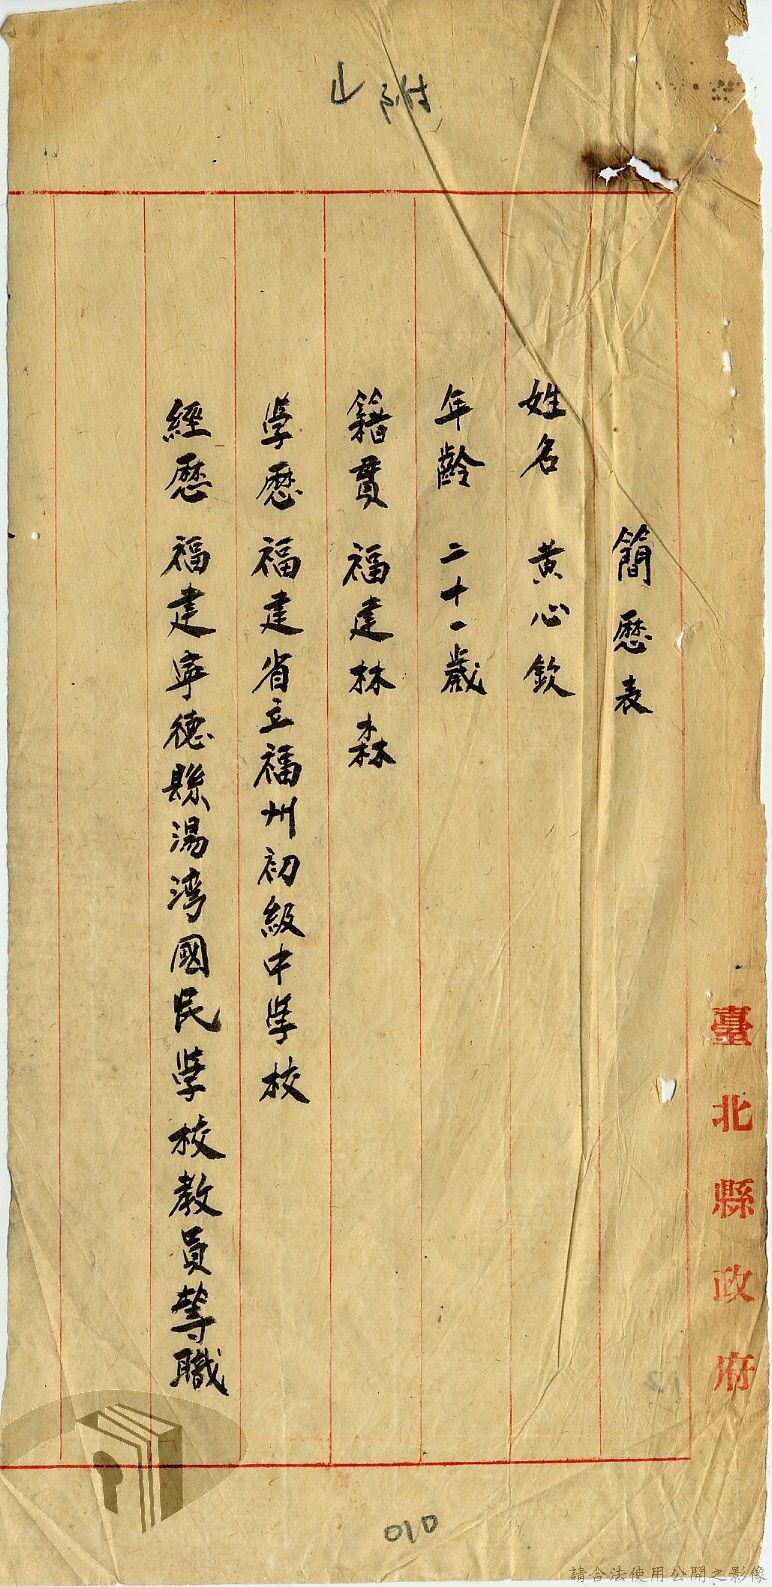 附
臺北縣政府
簡歷表
姓名 黃心欽
年齡 二十一歲
籍貫 福建林森
学歷 福建省立福州初級中学校
經歷 福建寧德縣湯湾國民学校教員等職
010
請合法使用公開之影像